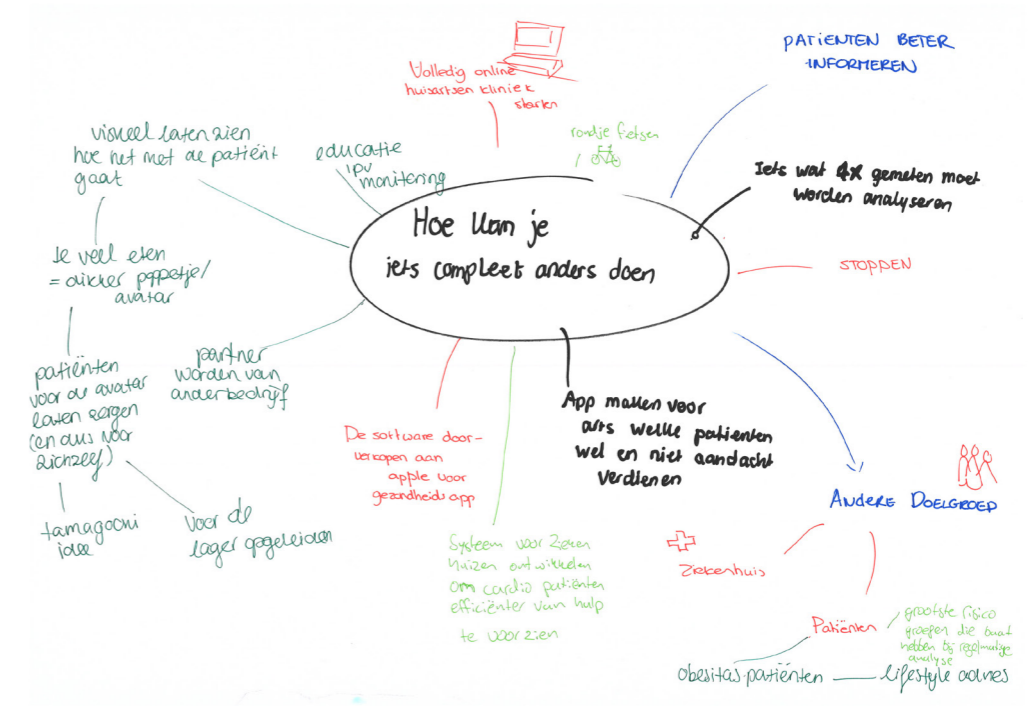 Hoe kan je
iets compleet anders doen
Volledig online
huisartsen kliniek
starten
rondje fietsen
PATIËNTEN BETER
INFORMEREN
Iets wat 4x gemeten moet
worden analyseren
STOPPEN
ANDERE DOELGROEP
Ziekenhuis
Patiënten
grootste risico
groepen die baat
hebben bij regelmatige
analyse
obesitas patiënten
lifestyle advies
App maken voor
arts welke patienten
wel en niet aandacht
verdienen
Systeem voor zieken
huizen ontwikkelen
om cardio patiënten
efficiënter van hulp
te voorzien
De software door-
verkopen aan
apple voor
gezondheids app
partner
worden van
ander bedrijf
educatie
ipv
monitoring
visueel laten zien
hoe het met de patiënt
gaat
te veel eten
= dikker poppetje/
avatar
patiënten
voor de avatar
laten zorgen
(en dus voor
zichzelf)
tamagochi
idee
voor de
lager opgeleiden